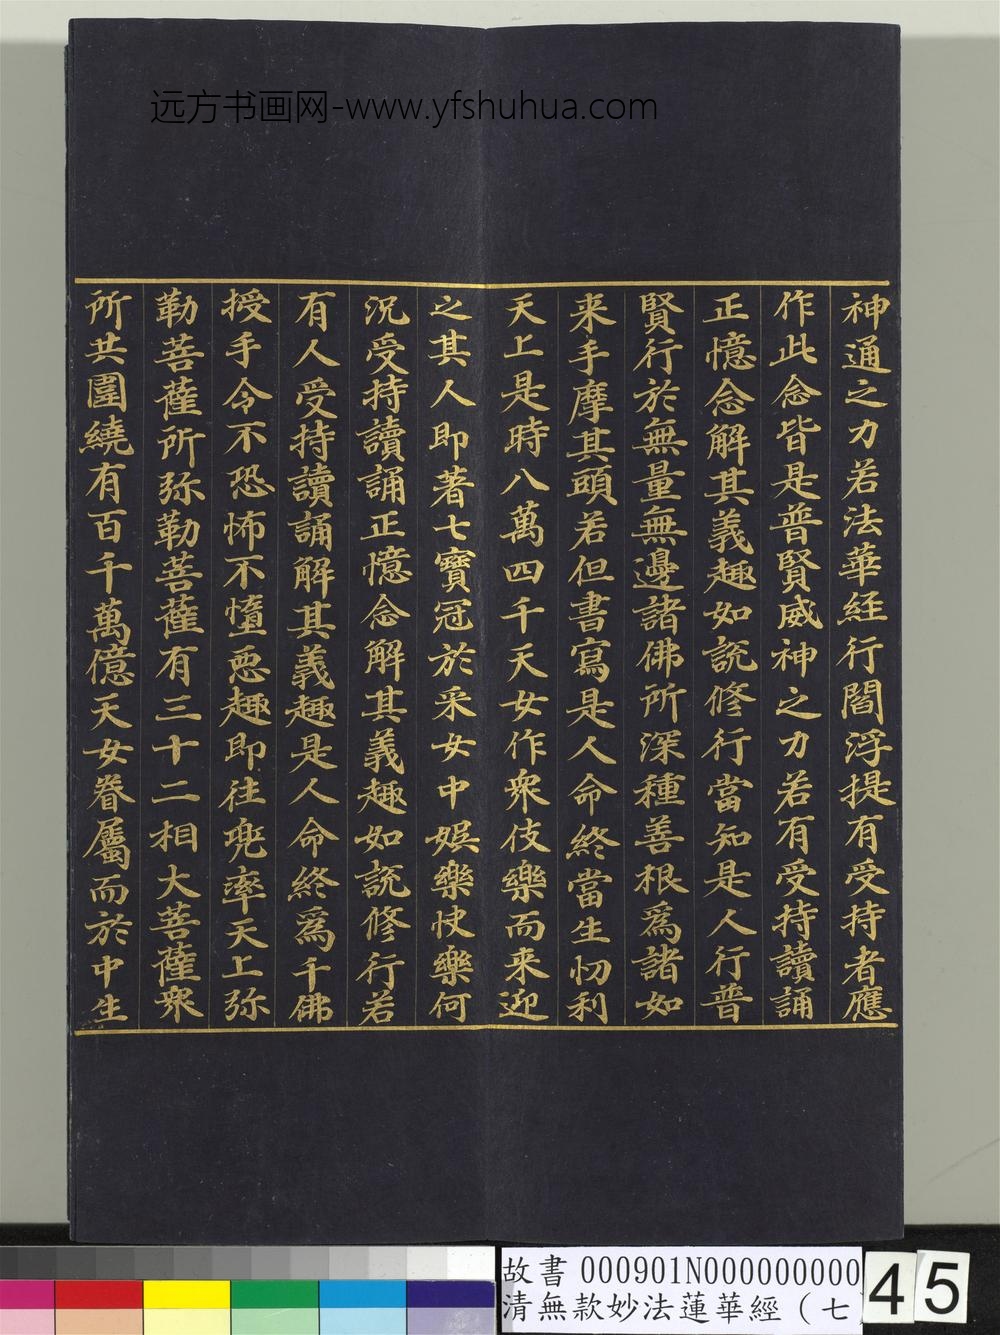 远方书画网-www.yfshuhua.com
神通之力若法華経行閻浮提有受持者應
作此念皆是普賢威神之力若有受持讀誦
正憶念解其義趣如說修行當知是人行普
賢行於無量無邊諸佛所深種善根爲諸如
来手摩其頭若但書寫是人命終當生忉利
天上是時八萬四千天女作衆伎樂而来迎
之其人即著七寶冠於采女中娛樂快樂何
況受持讀誦正憶念解其義趣如說修行若
有人受持讀誦解其義趣是人命終爲千佛
授手令不恐怖不墮惡趣即往兜率天上弥
勒菩薩所弥勒菩薩有三十二相大菩薩衆
所共圍繞有百千萬億天女眷屬而於中生
故書 000901N000000000
清無款妙法蓮華經（七）
45